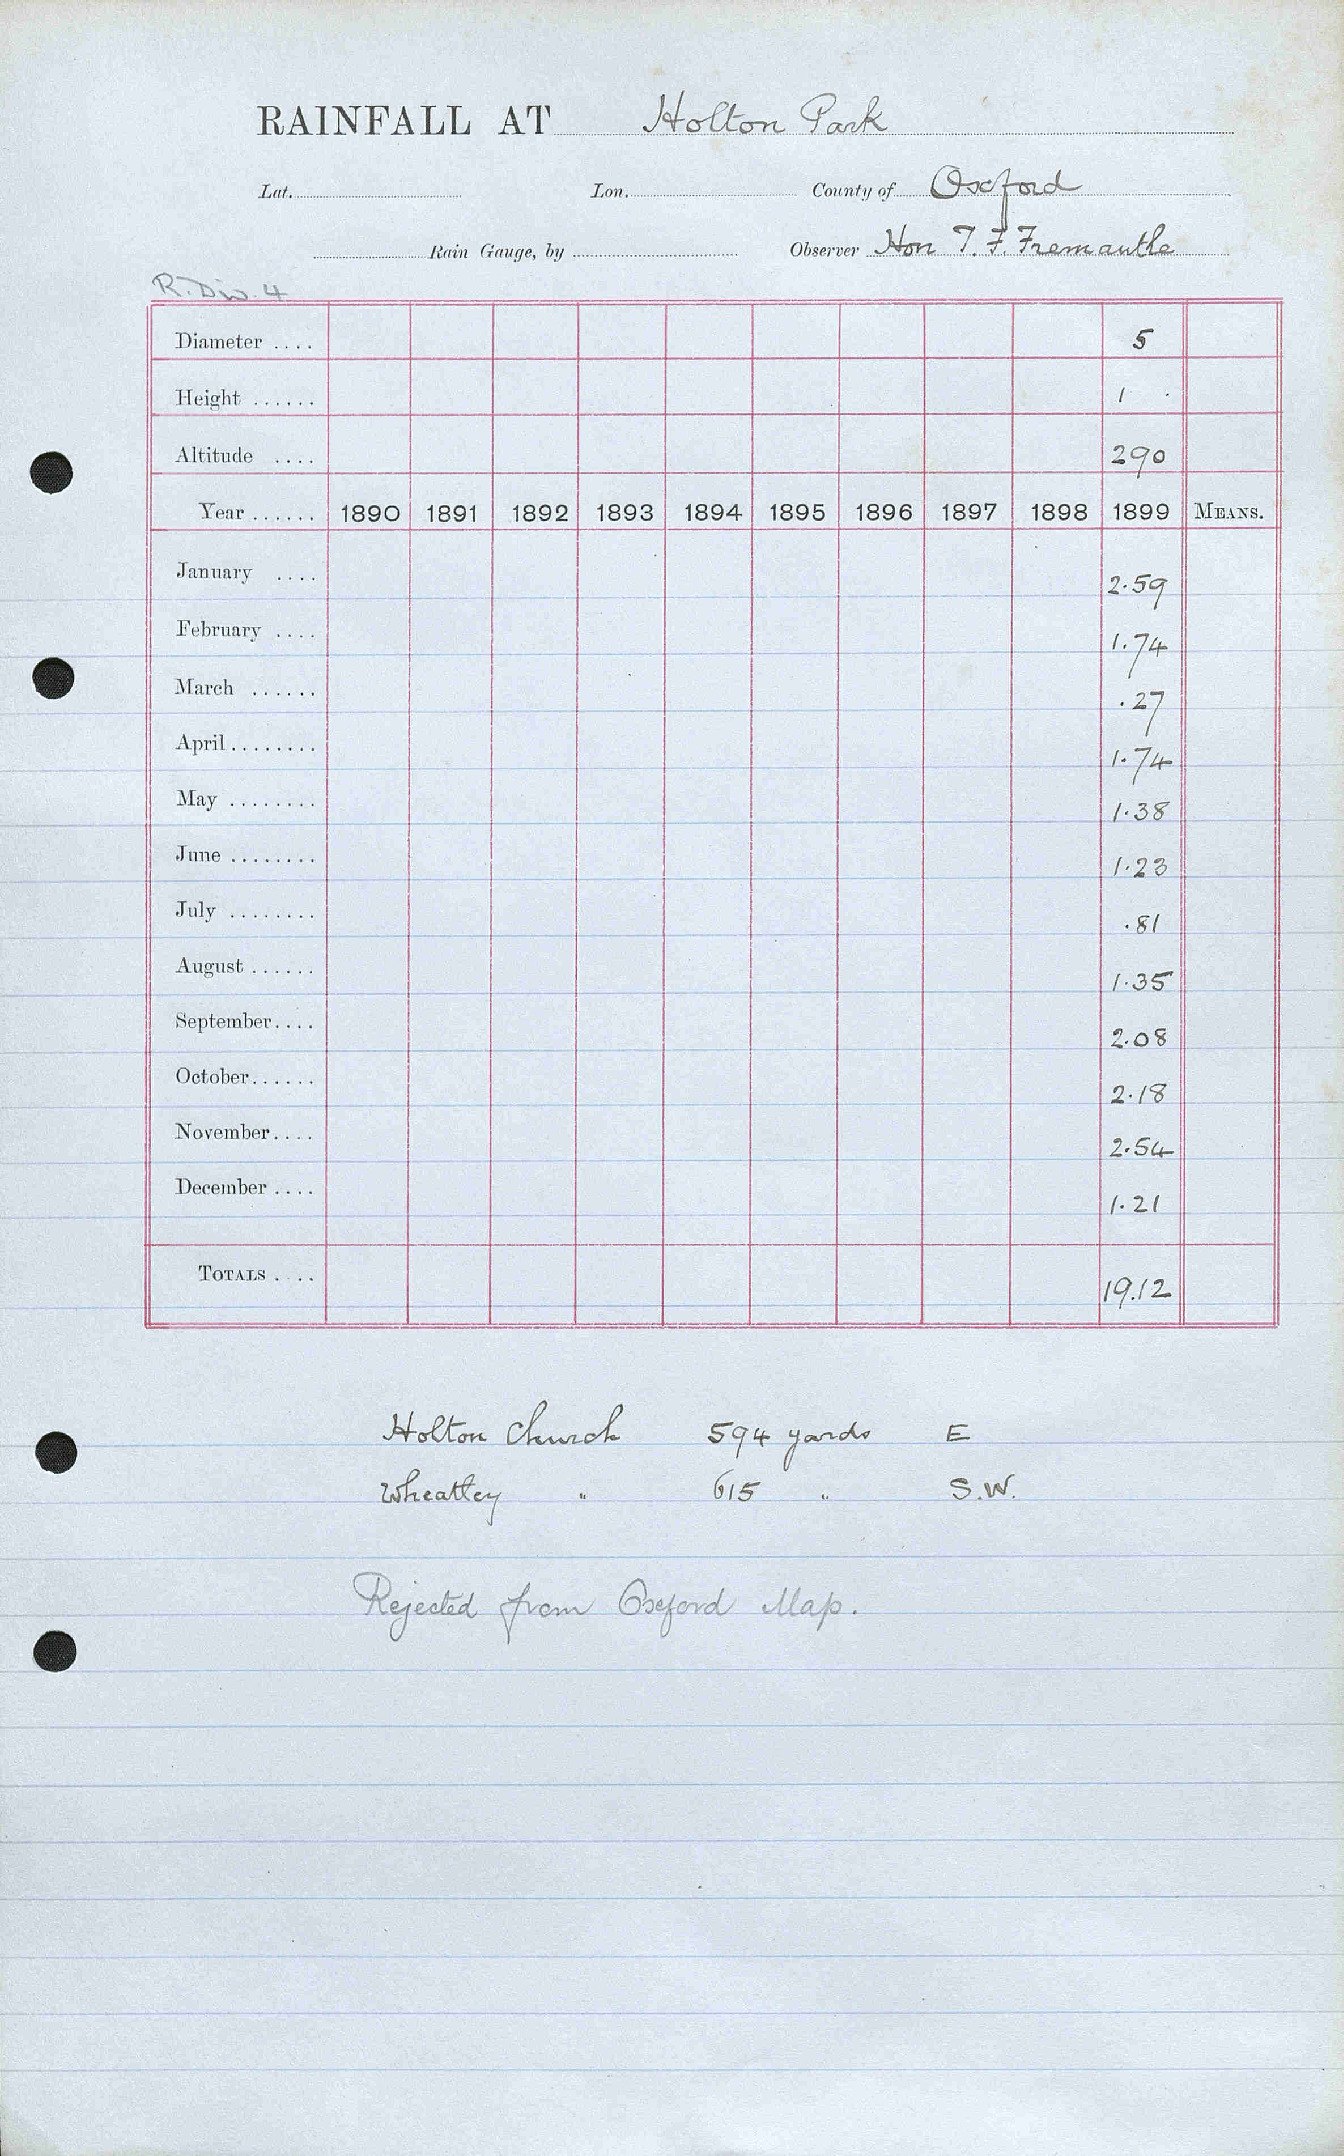 RAINFALL AT Holton Park
Lat. Lon. County of Oxford
Rain Gauge, by Observer Hon T. F. Fremantle
R. Div. 4
Diameter .... 5
Height ...... 1
Altitude .... 290
Year ...... 1890 1891 1892 1893 1894 1895 1896 1897 1898 1899 MEANS.
January .... 2.59
February .... 1.74
March ...... .27
April ........ 1.74
May ........ 1.38
June ........ 1.23
July ........ .81
August ...... 1.35
September.... 2.08
October...... 2.18
November.... 2.54
December .... 1.21
TOTALS .... 19.12
Holton Church 594 yards E
Wheatley " 615 " S.W.
Rejected from Oxford Map.